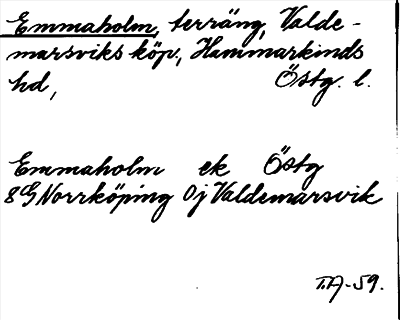 Emmaholm, terräng, Valde-
marsviks köp., Hammarkinds
hd, Östg. l.
Emmaholm ek Östg
8G Norrköping 0j Valdemarsvik
T.A-59.